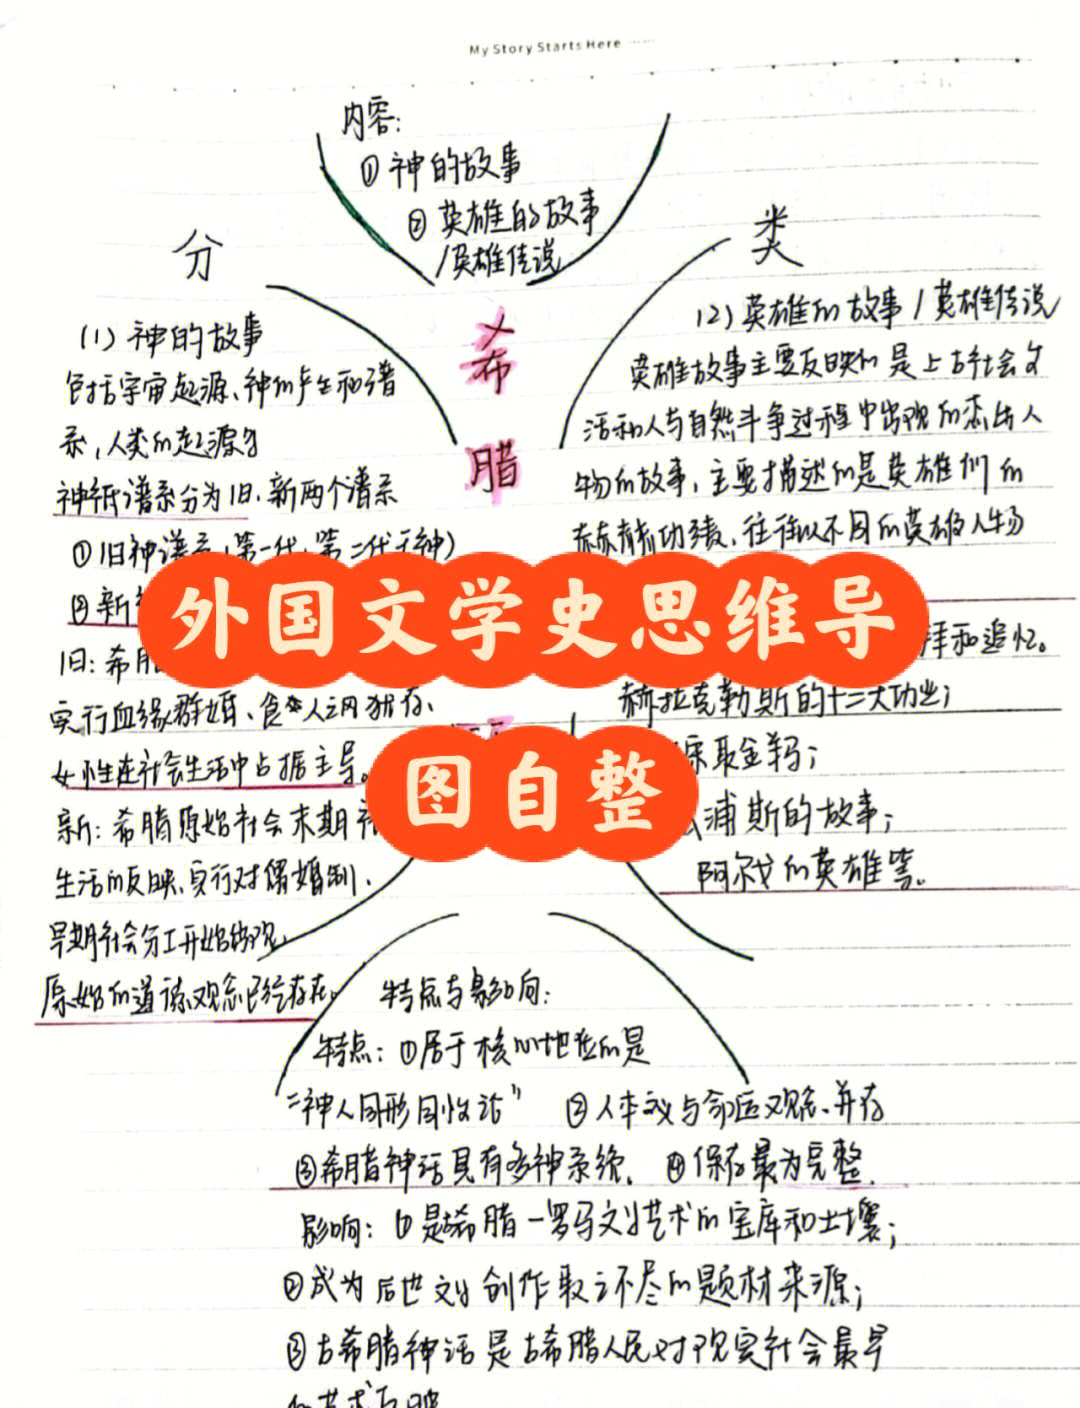 My Story Starts Here
内容:
① 神的故事
② 英雄的故事
/英雄传说
分
类
希
腊
(1) 神的故事
包括宇宙起源、神的产生和谱
系,人类的起源等
神祇谱系分为旧、新两个谱系
① 旧神谱系(第一代、第二代天神)
② 新
旧: 希腊
实行血缘群婚、食人之风犹存、
女性在社会生活中占据主导。
新: 希腊原始社会末期
生活的反映、实行对偶婚制、
早期社会分工开始出现、
原始的道德观念已经存在。
(2) 英雄的故事 / 英雄传说
英雄故事主要反映的是上古社会生
活和人与自然斗争过程中出现的杰出人
物的故事,主要描述的是英雄们的
赫赫功绩,往往以不同的英雄人物
拜和追忆。
赫拉克勒斯的十二大功业;
取金羊毛;
浦斯的故事;
阿尔戈的英雄等。
外国文学史思维导
图自整
特点与影响:
特点: ① 居于核心地位的是
“神人同形同性论” ② 人本主义与命运观念并存
③ 希腊神话具有多神系统. ④ 保存最为完整.
影响: ① 是古希腊-罗马文学艺术的宝库和土壤;
② 成为后世文学创作取之不尽的题材来源;
③ 古希腊神话是古希腊人民对现实社会最早
的艺术反映